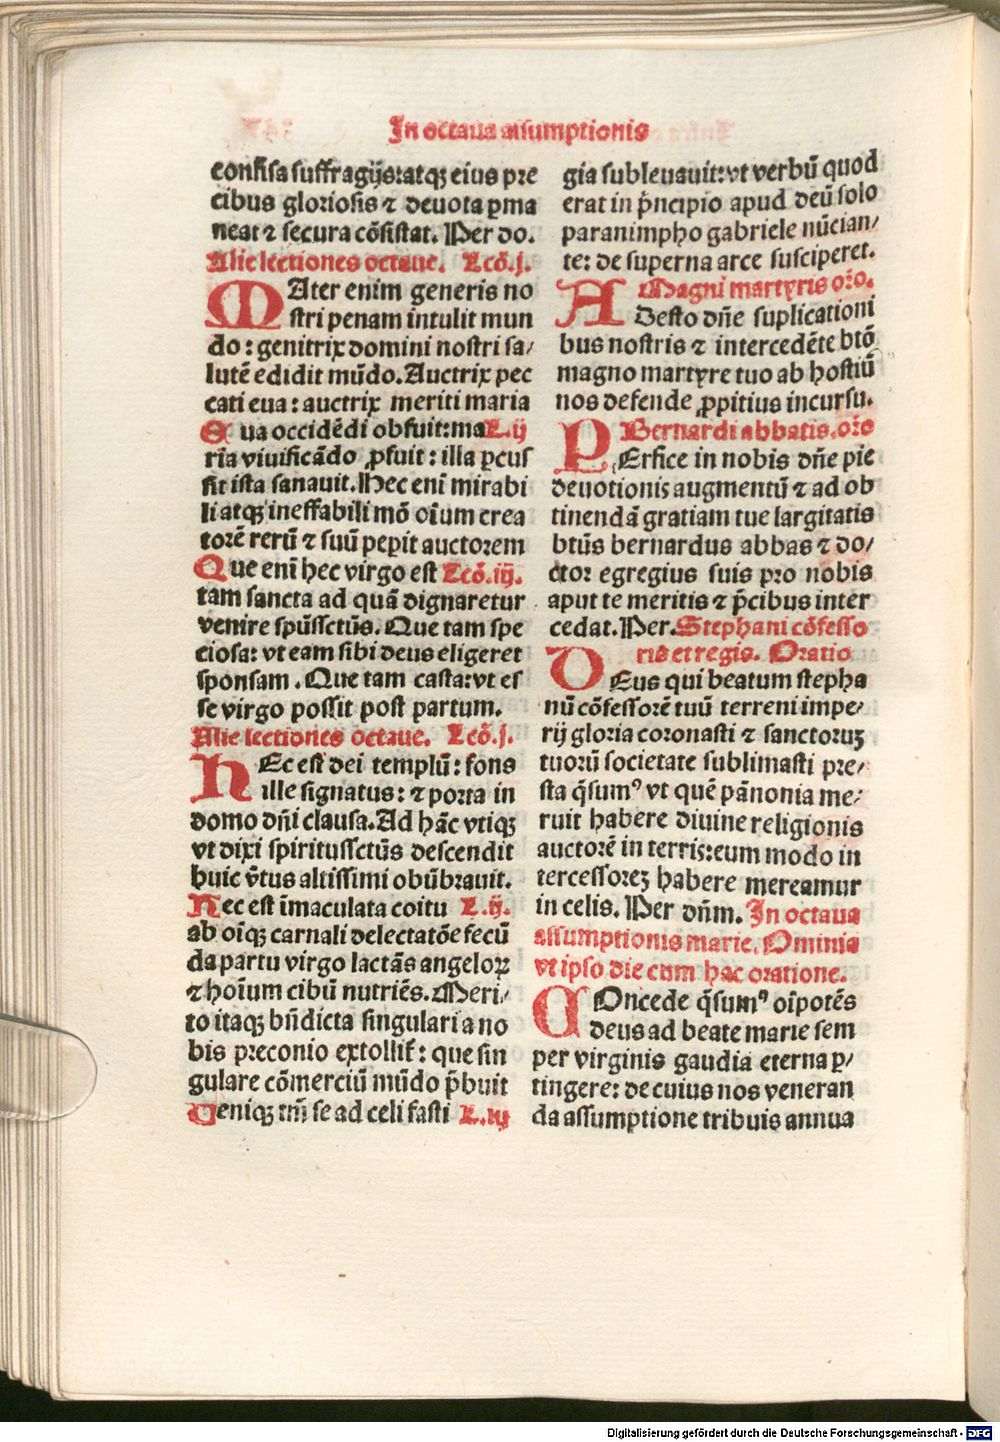 In octaua assumptionis
confisa suffragijs: atqꝫ eius pre
cibus gloriosis ⁊ deuota ꝑma
neat ⁊ secura cōsistat. Per do.
Alie lectiones octaue. Lcō.j.
MAter enim generis no
stri penam intulit mun
do: genitrix domini nostri sa/
lutē edidit mūdo. Auctrix pec
cati eua: auctrix meriti maria
Eua occidēdi obfuit: ma L.ij
ria viuificādo ꝓfuit: illa ꝑcus
sit ista sanauit. Hec eni mirabi
li atqꝫ ineffabili mō oīum crea
torē rerū ⁊ suū peꝑit auctorem
Que eni hec virgo est Lcō.iij.
tam sancta ad quā dignaretur
venire spūssctūs. Que tam spe
ciosa: vt eam sibi deus eligeret
sponsam. Que tam casta: vt es
se virgo possit post partum.
Alie lectiones octaue. Lcō.j.
HEc est dei templū: fons
ille signatus: ⁊ porta in
domo dn̄i clausa. Ad hāc vtiqꝫ
vt dixi spiritussctūs descendit
huic v̄tus altissimi obūbrauit.
Hec est īmaculata coitu L.ij.
ab oīqꝫ carnali delectatōe fecū
da partu virgo lactās angeloꝝ
⁊ hoīum cibū nutriēs. Meri/
to itaqꝫ bn̄dicta singularia no
bis preconio extollit᷑: que sin
gulare cōmerciū mūdo p̄buit
Deniqꝫ tm̄ se ad celi fasti L.iij
gia subleuauit: vt verbū quod
erat in p̄ncipio apud deū solo
paranimpho gabriele nūcian/
te: de superna arce susciperet.
Magni martyris orō.
ADesto dn̄e suplicationi
bus nostris ⁊ intercedēte btō
magno martyre tuo ab hostiū
nos defende ꝓpitius incursu.
Bernardi abbatis. orō
PErfice in nobis dn̄e pie
deuotionis augmentū ⁊ ad ob
tinendā gratiam tue largitatis
btūs bernardus abbas ⁊ do/
ctor egregius suis pro nobis
aput te meritis ⁊ p̄cibus inter
cedat. Per. Stephani cōfesso
ris et regis. Oratio
DEus qui beatum stepha
nū cōfessorē tuū terreni impe/
rij gloria coronasti ⁊ sanctoruꝫ
tuorū societate sublimasti pre/
sta q̄sumꝰ vt quē pānonia me/
ruit habere diuine religionis
auctorē in terris: eum modo in
tercessoreꝫ habere mereamur
in celis. Per dn̄m. In octaua
assumptionis marie. Ominia
vt ipso die cum hac oratione.
COncede q̄sumꝰ oīpotēs
deus ad beate marie sem
per virginis gaudia eterna ꝑ/
tingere: de cuius nos veneran
da assumptione tribuis annua
Digitalisierung gefördert durch die Deutsche Forschungsgemeinschaft - DFG